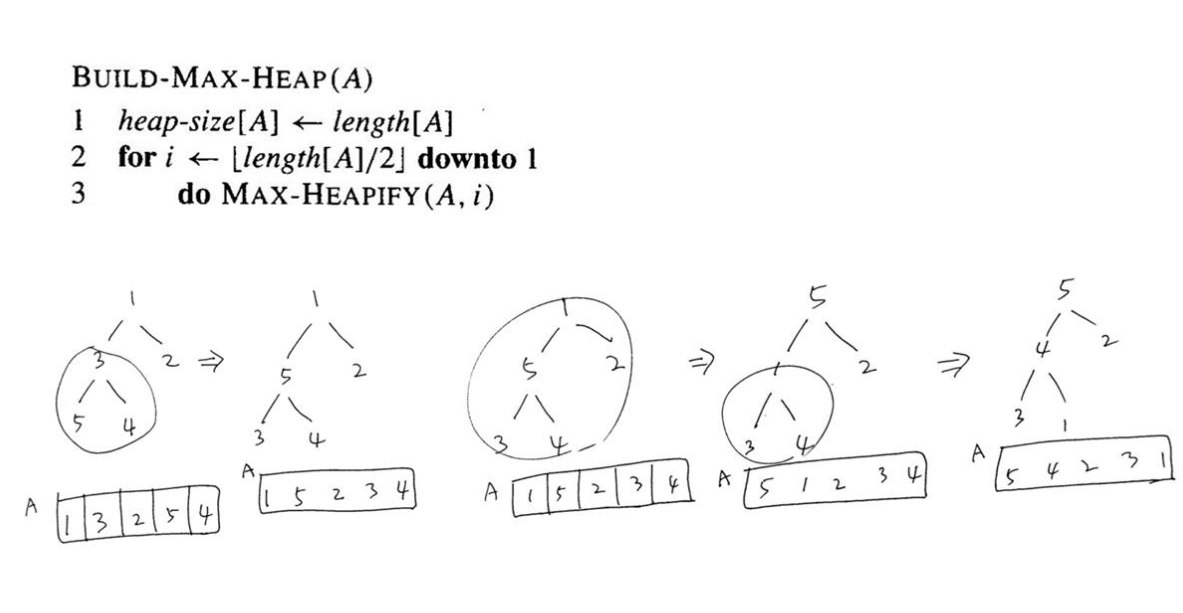 BUILD-MAX-HEAP(A)
1 heap-size[A] ← length[A]
2 for i ← ⌊length[A]/2⌋ downto 1
3 do MAX-HEAPIFY(A, i)
1
3 2 ⇒
5 4
A 1 3 2 5 4
1
5 2
3 4
A 1 5 2 3 4
1
5 2 ⇒
3 4
A 1 5 2 3 4
5
1 2 ⇒
3 4
A 5 1 2 3 4
5
4 2
3 1
A 5 4 2 3 1